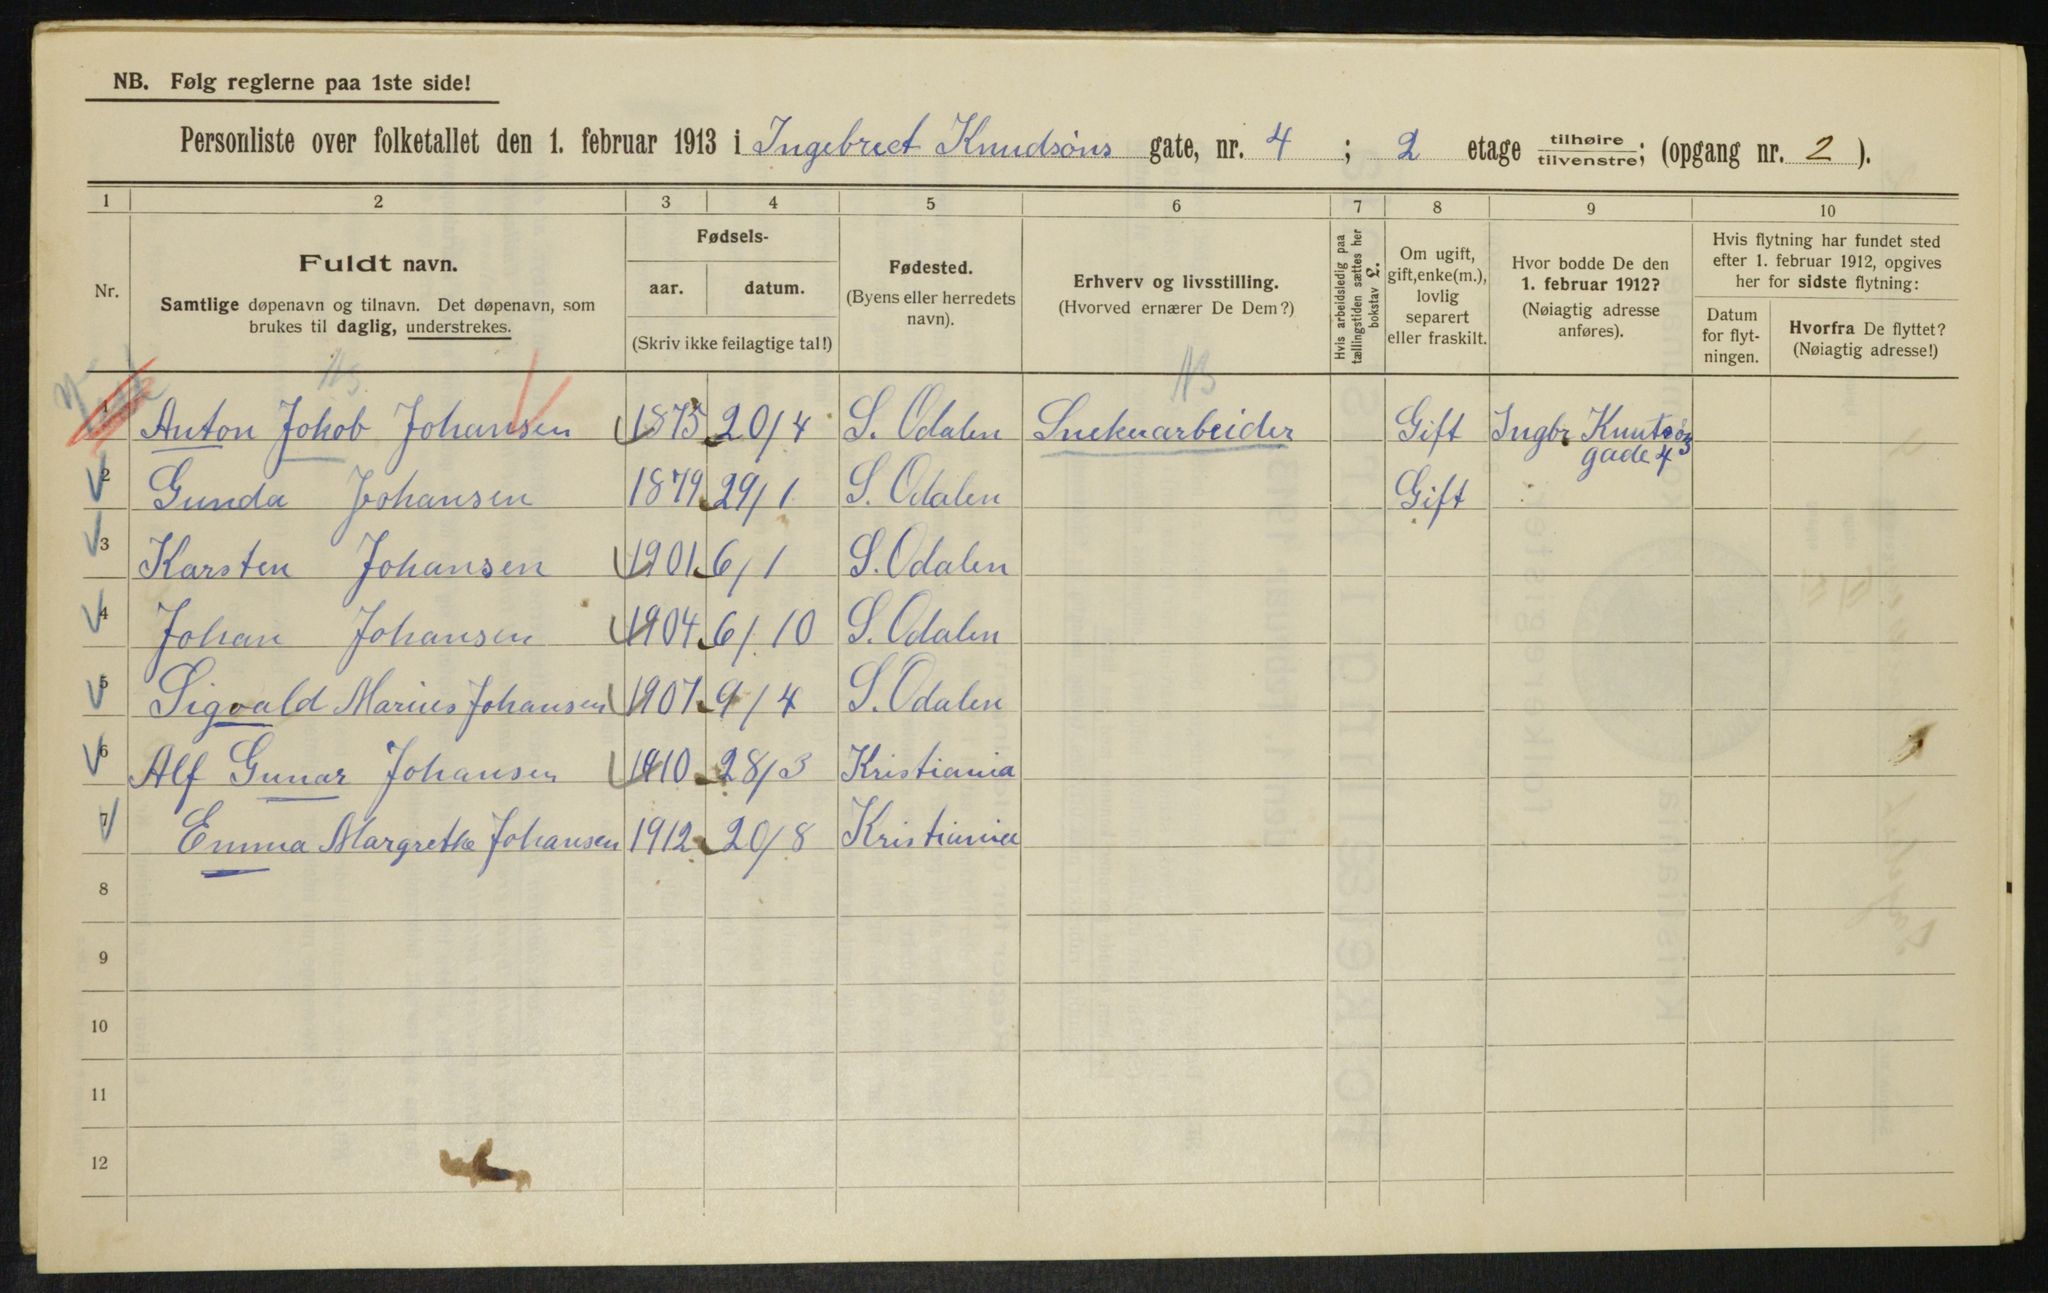 NB. Følg reglerne paa 1ste side!
Personliste over folketallet den 1. februar 1913 i Ingebrect Knudsøns gate, nr. 4 ; 2 etage tilhøire/tilvenstre; (opgang nr. 2 ).
1 2 3 4 5 6 7 8 9 10
Nr.
Fuldt navn.
Samtlige døpenavn og tilnavn. Det døpenavn, som
brukes til daglig, understrekes.
Fødsels-
aar. datum.
(Skriv ikke feilagtige tal!)
Fødested.
(Byens eller herredets
navn).
Erhverv og livsstilling.
(Hvorved ernærer De Dem?)
Hvis arbeidsledig paa
tællingstiden sættes her
bokstav L.
Om ugift,
gift, enke(m.),
lovlig
separert
eller fraskilt.
Hvor bodde De den
1. februar 1912?
(Nøiagtig adresse
anføres).
Hvis flytning har fundet sted
efter 1. februar 1912, opgives
her for sidste flytning:
Datum
for flyt-
ningen.
Hvorfra De flyttet?
(Nøiagtig adresse!)
1 Anton Jokob Johansen 1875 20/4 S. Odalen Snekerarbeider Gift Ingbr Knutsøn
gade 4
2 Gunda Johansen 1879 29/1 S. Odalen Gift
3 Karsten Johansen 1901 6/1 S. Odalen
4 Johan Johansen 1904 6/10 S. Odalen
5 Sigvald Marius Johansen 1907 9/4 S. Odalen
6 Alf Gunar Johansen 1910 28/3 Kristiania
7 Emma Margrethe Johansen 1912 20/8 Kristiania
8
9
10
11
12